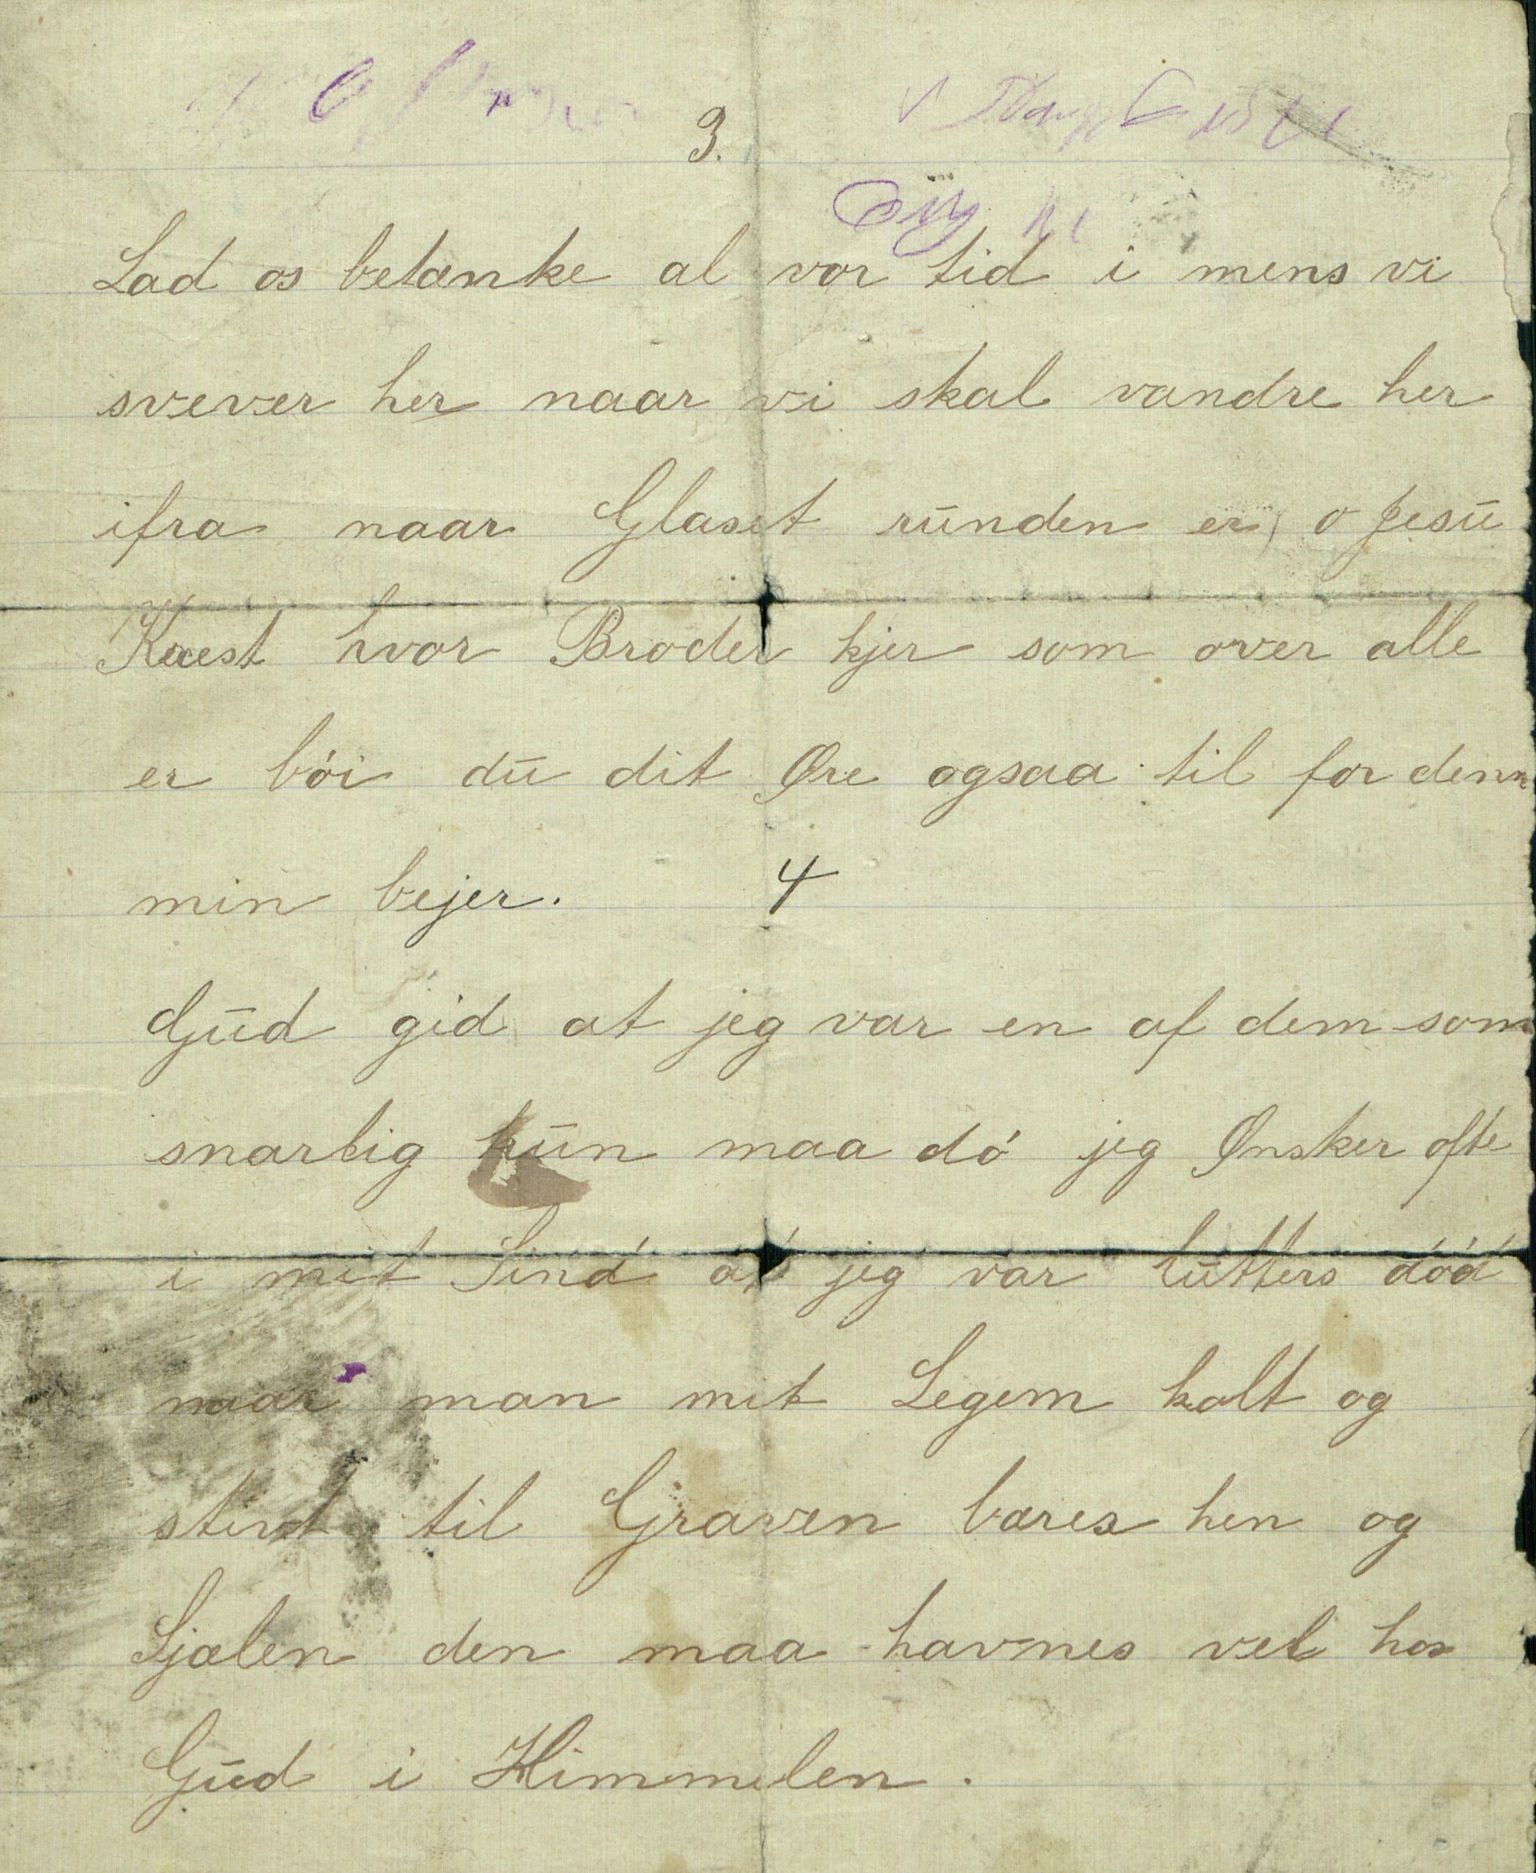 3.
Lad os betænke al vor tid i mens vi
svever her naar vi skal vandre her
ifra naar Glaset runden er, o Jesu
hvor Broder kjer som over alle
er bói du dit Øre ogsaa til for denne
min bejer.
4
Gud gid at jeg var en af dem som
snarlig kun maa dó jeg Ønsker ofte
i mit Sind at jeg var lutters dód
naar man mit Legem kalt og
stivt til Graven bæres hen og
Sjælen den maa havnes vel hos
Gud i Himmelen.